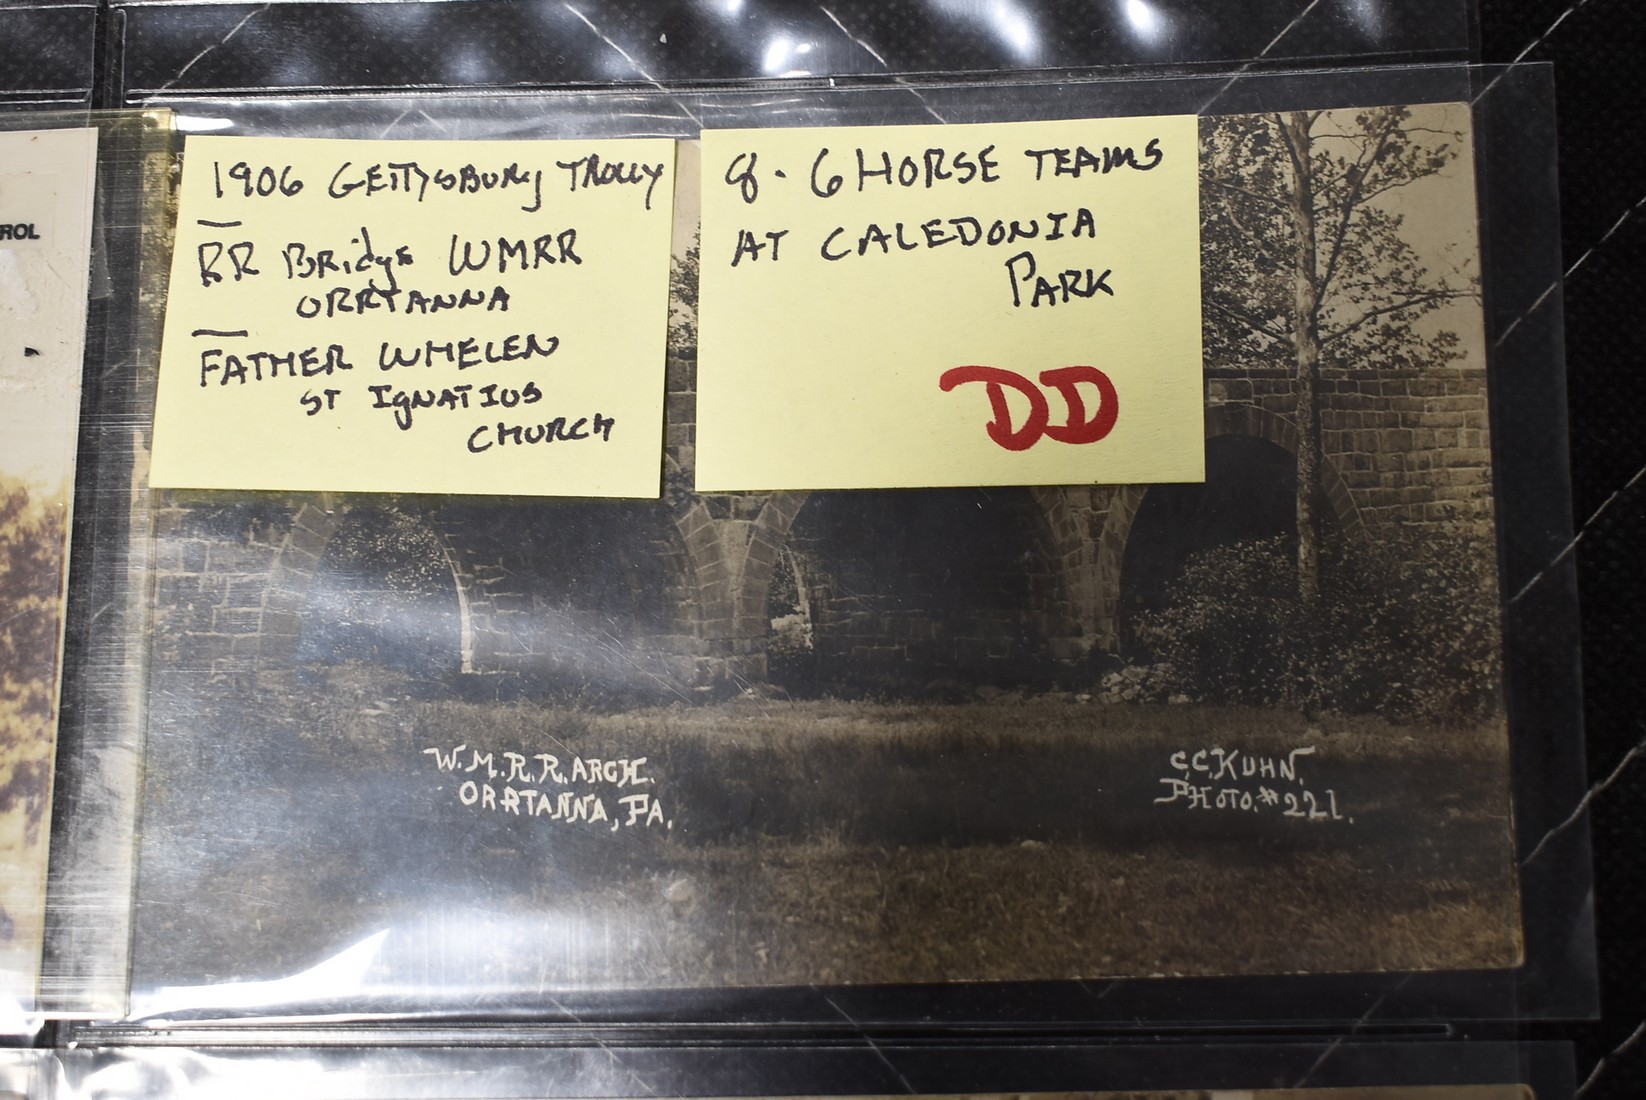 ROL
1906 GETTYSBURG TROLLY
RR BRidge WMRR
ORRTANNA
FATHER WHELEN
ST IGNATIUS
CHURCH
8 - 6 HORSE TEAMS
AT CALEDONIA
PARK
DD
W.M.R.R. ARCH.
ORRTANNA, PA.
C.C. KUHN.
PHOTO. #221.